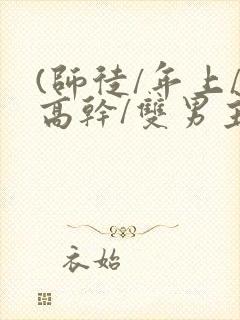 (師徒/年上/
高幹/雙男主
衣始